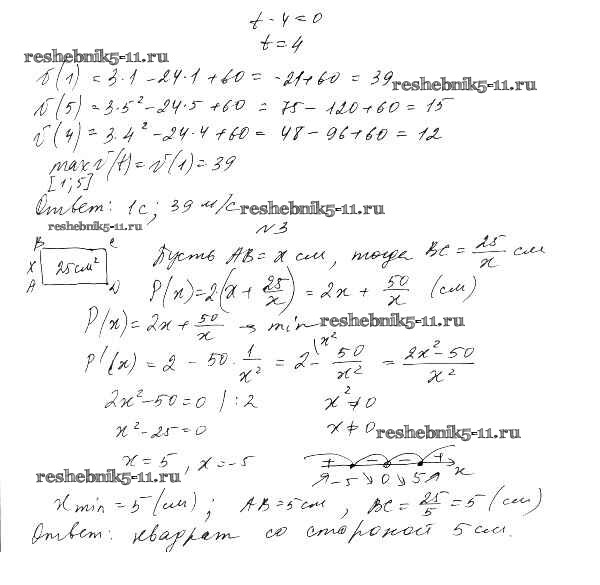 t - 4 = 0
t = 4
reshebnik5-11.ru
v(1) = 3·1 - 24·1 + 60 = -21 + 60 = 39
reshebnik5-11.ru
v(5) = 3·5² - 24·5 + 60 = 75 - 120 + 60 = 15
v(4) = 3·4² - 24·4 + 60 = 48 - 96 + 60 = 12
max v(t) = v(1) = 39
[1; 5]
Ответ: 1с; 39 м/с
reshebnik5-11.ru
reshebnik5-11.ru
№3
B C
x 25 см²
A D
Пусть AB = x см, тогда BC = 25/x см
P(x) = 2(x + 25/x) = 2x + 50/x (см)
P(x) = 2x + 50/x → min
reshebnik5-11.ru
P'(x) = 2 - 50 · 1/x² = 2\x² - 50/x² = 2x² - 50/x²
2x² - 50 = 0 / :2 x² ≠ 0
x² - 25 = 0 x ≠ 0
reshebnik5-11.ru
x = 5, x = -5
+ - - + x
↗ -5 ↘ 0 ↘ 5 ↗
reshebnik5-11.ru
x min = 5 (см); AB = 5 см, BC = 25/5 = 5 (см)
Ответ: квадрат со стороной 5 см.